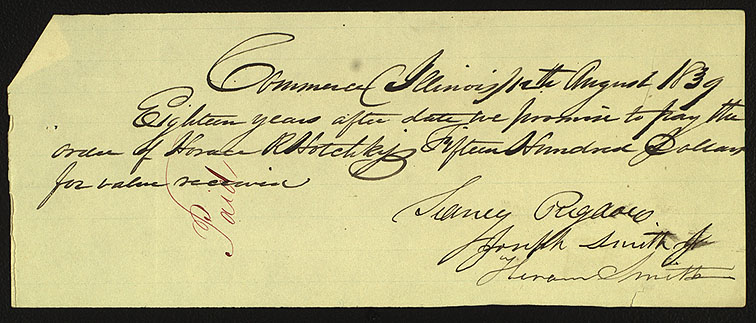 Commerce Illinois 12th August 1839
Eighteen years after date we promise to pay the
order of Horace R Hotchkiss Fifteen Hundred Dollars
for value received
Paid
Sidney Rigdon
Joseph Smith Jr
Hiram Smith